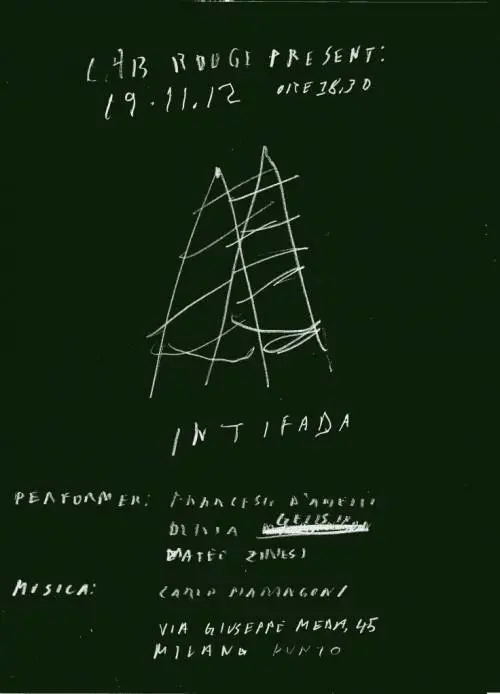 LAB ROUGE PRESENT:
19.11.12 ORE 18.30
INTIFADA
PERFORMER: FRANCESCO
MATEO ZINESI
MUSICA: CARLO MARAGONI
VIA GIUSEPPE MEDA, 45
MILANO PUNTO